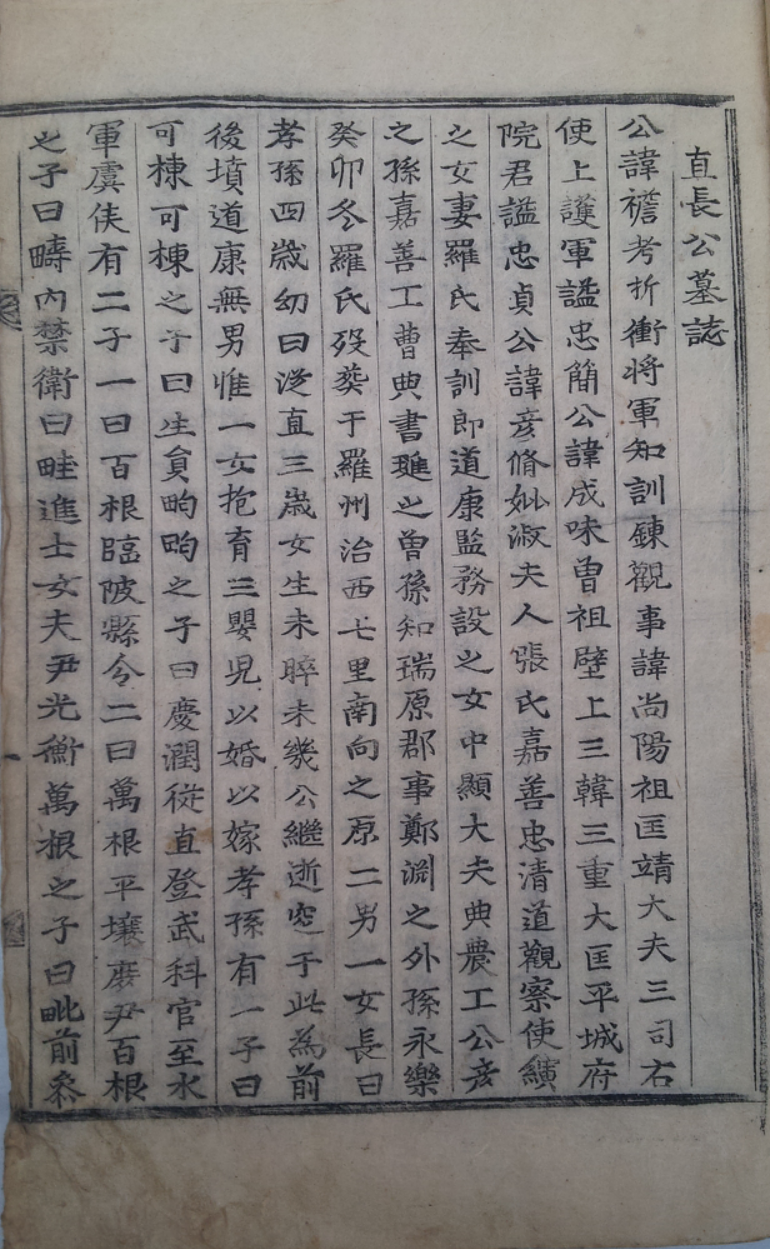 直長公墓誌
公諱襜考折衝將軍知訓鍊觀事諱尚陽祖匡靖大夫三司右
使上護軍諡忠簡公諱成味曾祖壁上三韓三重大匡平城府
院君諡忠貞公諱彦脩妣淑夫人張氏嘉善忠清道觀察使績
之女妻羅氏奉訓郎道康監務設之女中顯大夫典農工公彦
之孫嘉善工曹典書璡之曾孫知瑞原郡事鄭淵之外孫永樂
癸卯冬羅氏歿葬于羅州治西七里南向之原二男一女長曰
孝孫四歲幼曰從直三歲女生未晬未幾公繼逝窆于此為前
後墳道康無男惟一女抱育三嬰児以婚以嫁孝孫有一子曰
可棟可棟之子曰生員畇畇之子曰慶潤從直登武科官至水
軍虞侯有二子一曰百根臨陂縣令二曰萬根平壤庶尹百根
之子曰疇內禁衛曰畦進士女夫尹光衡萬根之子曰毗前叅